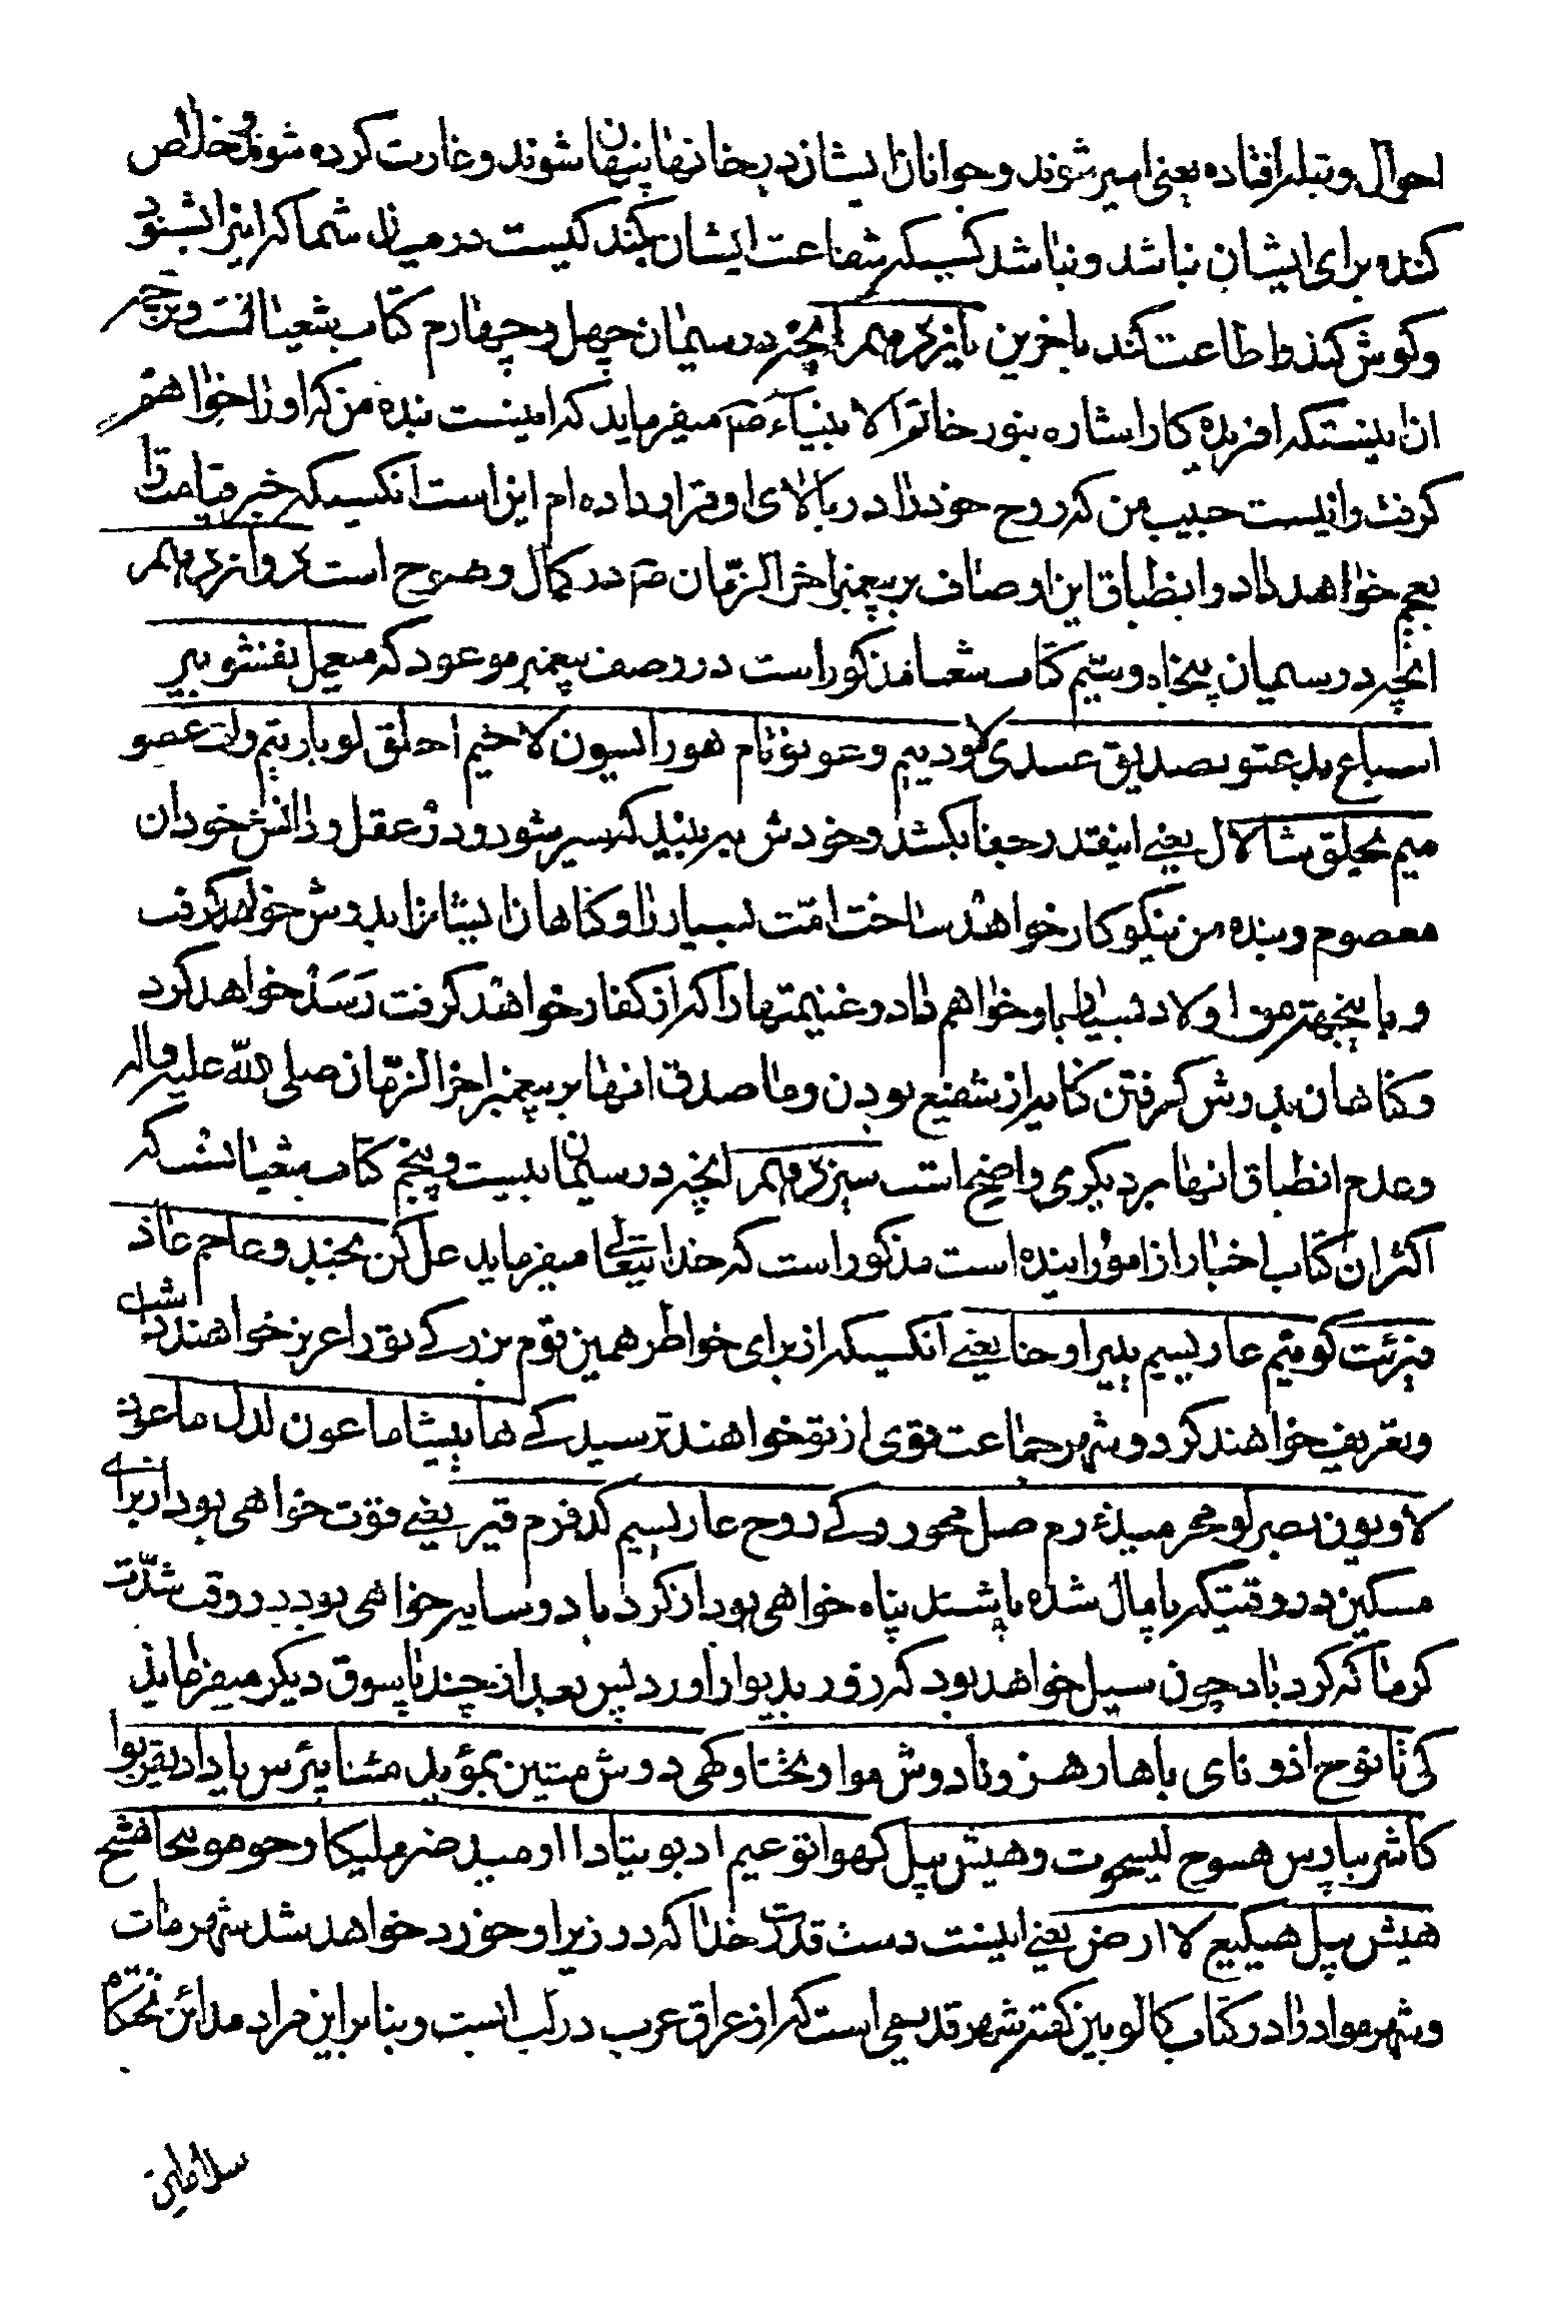 احوال و تبله افتاده یعنی اسیر شوند و جوانان ایشان در خانها پنهان شوند و غارت کرده شوند و خلاص
کننده برای ایشان نباشد و نباشد کسیکه شفاعت ایشان بکند کیست در میان شما که اینرا بشنود
و کوش کند و اطاعت کند باخرین یازدهم انچه در سیمان چهل و چهارم کتاب یشعیاست و ترجمه
ان اینستکه افریدکار اشاره بنور خاتم الانبیاء ص میفرماید که اینست بنده من که او را خواهم
کرفت و اینست حبیب من که روح خود را در بالای او قرار داده ام این است انکسیکه خبر قیامت را
بعجم خواهد داد و انطباق این اوصاف بر پیغمبر اخر الزمان ص در کمال وضوح است دوازدهم
انچه در سیمان پنجاه و سیم کتاب یشعیا مذکور است در وصف پیغمبر موعود که میعمل نفشو ییر
اسباع بدعتو یصدیق عبدی لاربیم وعونوتام هو رایسبول لاخیم احلق لو باربیم وات عصو
میم یحلق شالال یعنی اینقدر جفا بکشد و خودش ببر ببیند که سیر شود و در عقل و دانش خود ان
معصوم و بنده من نیکوکار خواهد ساخت امت بسیار را و کناهان ایشانرا بدوش خواهد کرفت
و باینجهة من اولاد بسیار باو خواهم داد و غنیمتها را که از کفار خواهند کرفت رسد خواهد کرد
و کناهان بدوش کرفتن کنایه از شفیع بودن و ما صدق انها بر پیغمبر اخر الزمان صلی الله علیه و اله
و عدم انطباق انها بر دیکری واضح است سیزدهم انچه در سیمان بیست و پنجم کتاب یشعیاست که
اکثر ان کتاب اخبار از امور اینده است مذکور است که خدایتعالی میفرماید عل کن یخبدو عام عاذ
قریت کوئیم عاریسیم ییراوخا یعنی انکسیکه از برای خواطر همین قوم بزرک تو را عزیز خواهند داشت
و تعریف خواهند کرد و شهر جماعت قوی از تو خواهند ترسید کی هاییشا ماعون لدل ماعوذ
لاویون بصر لو محر میذرم صل محورب کی روح عاریسیم کذرم قیر یعنی قوت خواهی بود از برای
مسکین در وقتیکه پامال شده باشند پناه خواهی بود از کردباد و سایه خواهی بود در وقت شدت
کرما که کردباد چون سیل خواهد بود که زور بدیوار اورد پس بعد از چند پاسوق دیکر میفرماید
کی تانوح اذونای باهار هزه ونادوش مواو تحتاو کهی دوش متبن بمو یدمنا پرس یاداو بقربوا
کاشر یپارس هسوح لیسحوت وهیش پیل کهواتو عیم ادبوت یاداو ومیبصر ... هشح
هیش پیل هیکیع لاارض یعنی اینست دست قدرت خدا که در زیر او خورد خواهد شد شهر مات
و شهر مواو را در کتاب کالوپین کفته شهر قدیمی است که از عراق عرب در لب است و بنا بر این مراد مدائن
سلاطین